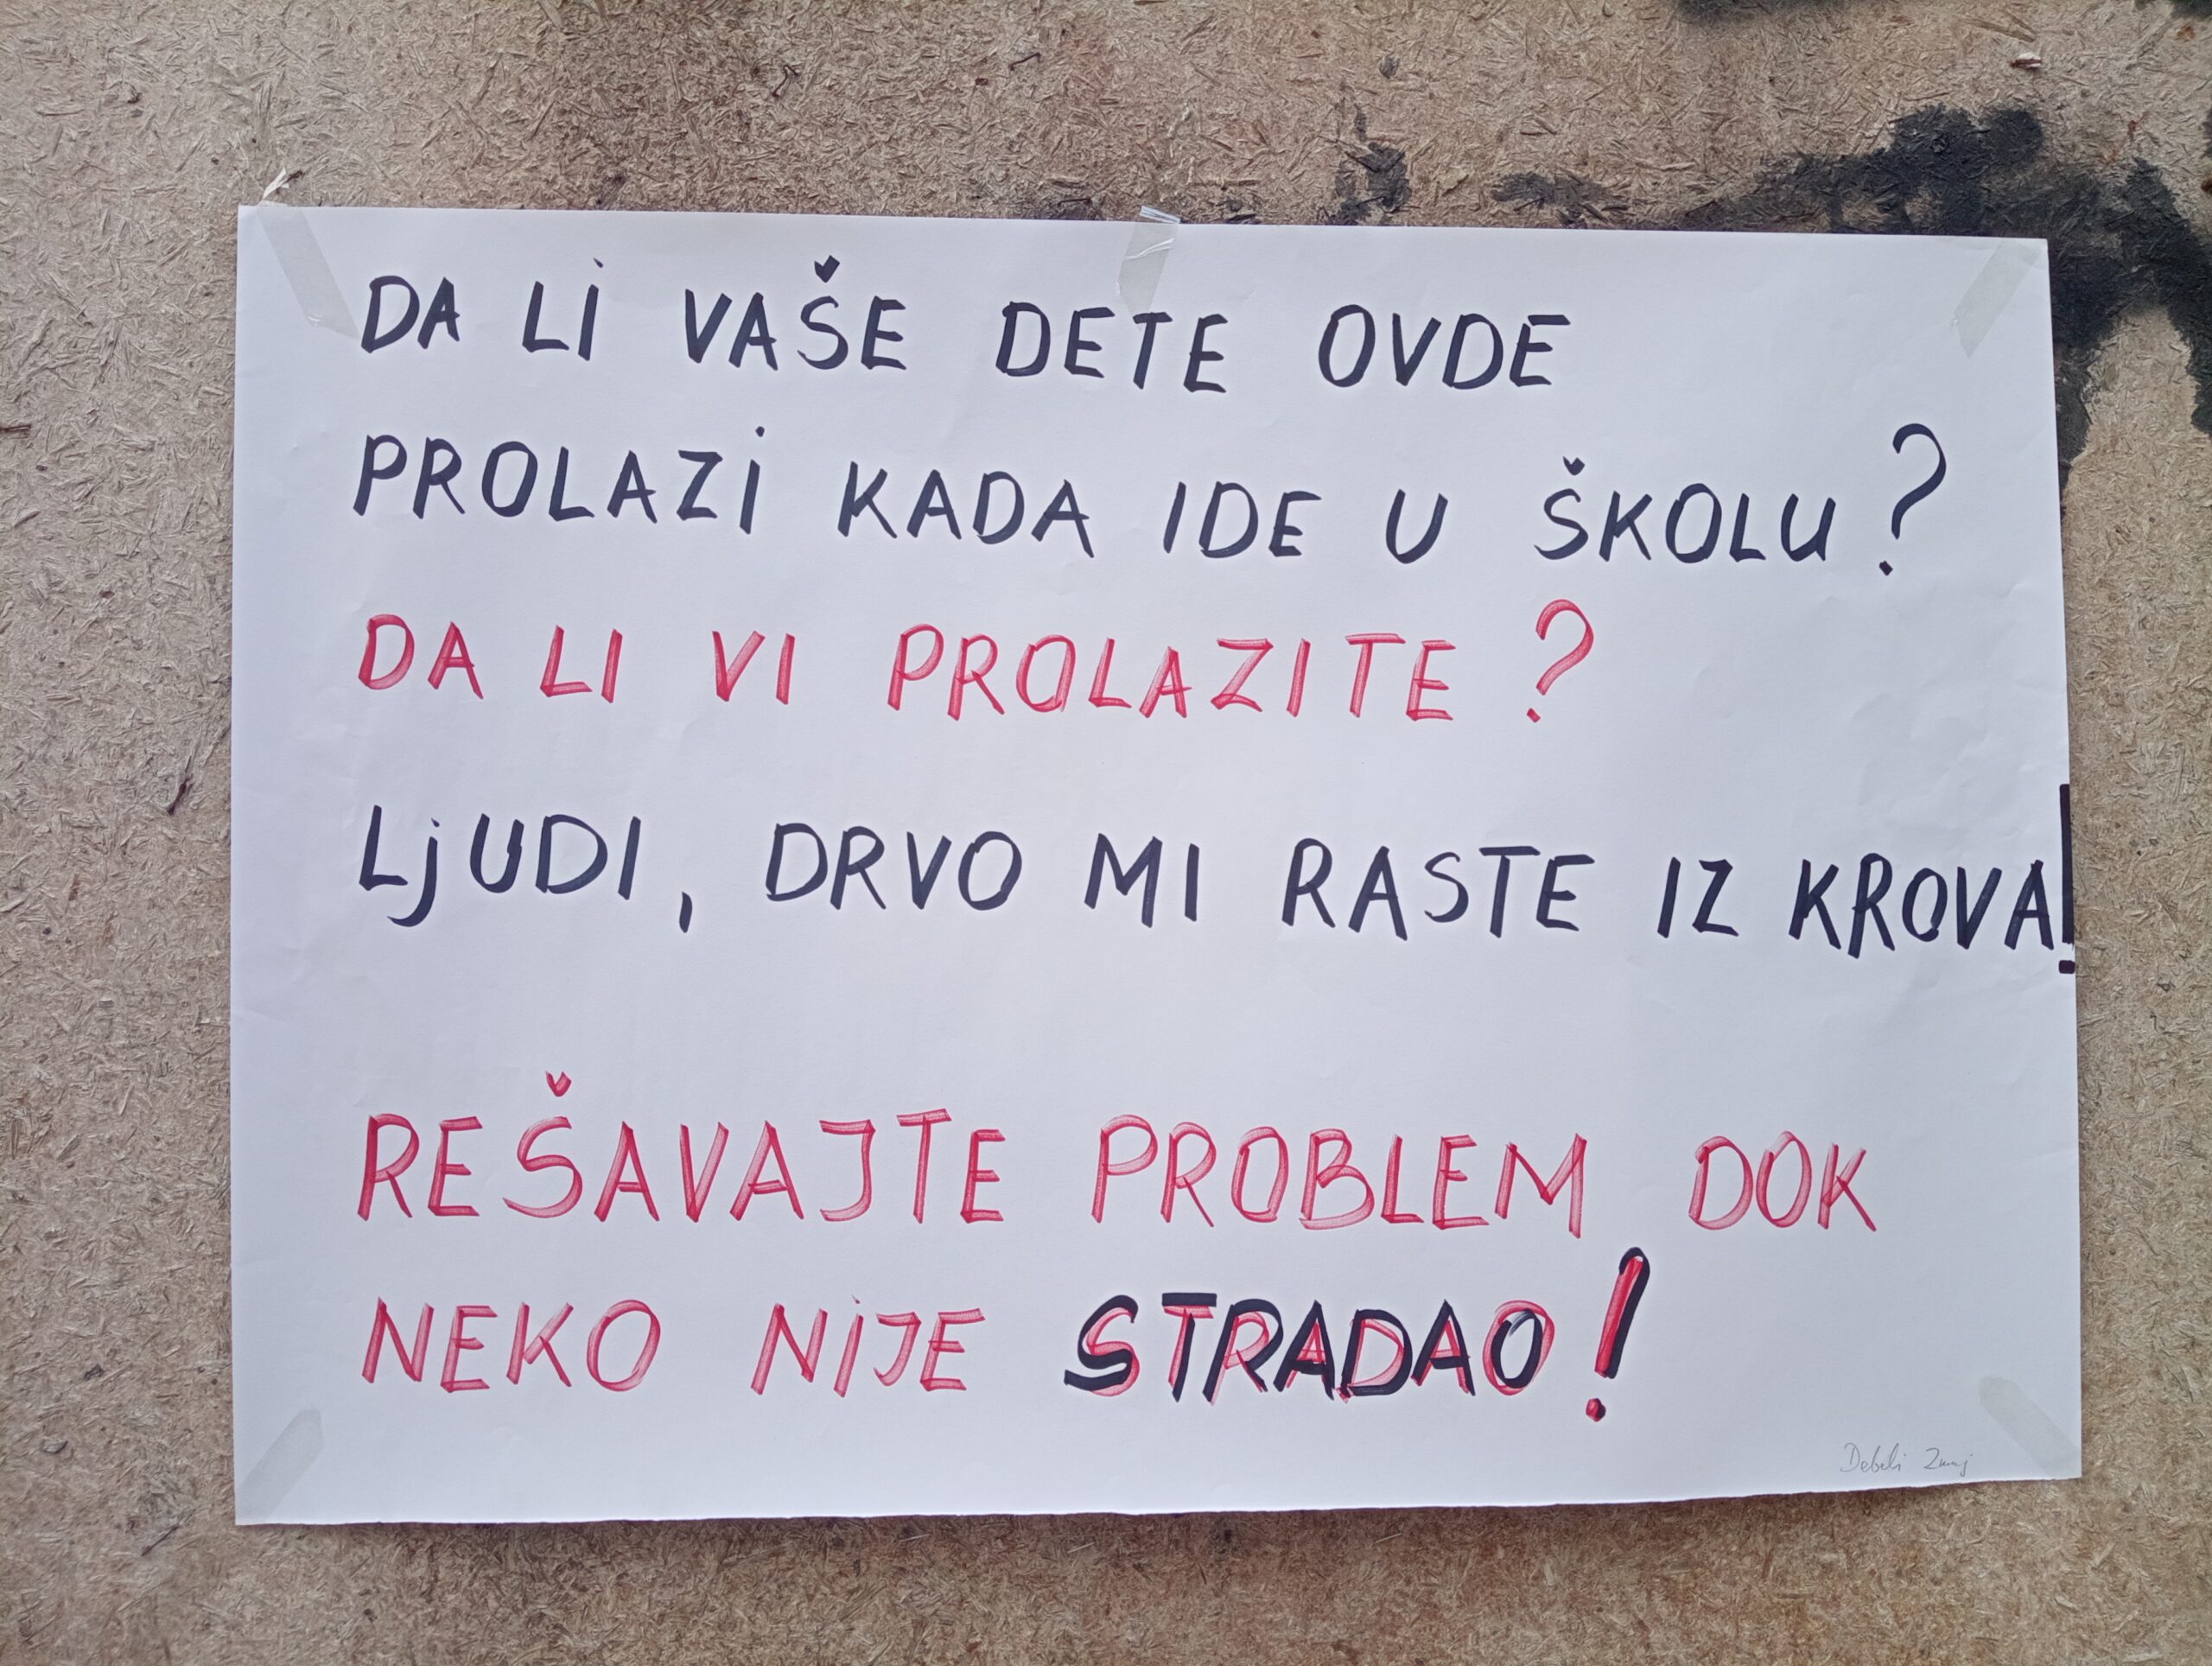 DA LI VAŠE DETE OVDE
PROLAZI KADA IDE U ŠKOLU?
DA LI VI PROLAZITE?
LJUDI, DRVO MI RASTE IZ KROVA!
REŠAVAJTE PROBLEM DOK
NEKO NIJE STRADAO!
Debeli Zmaj